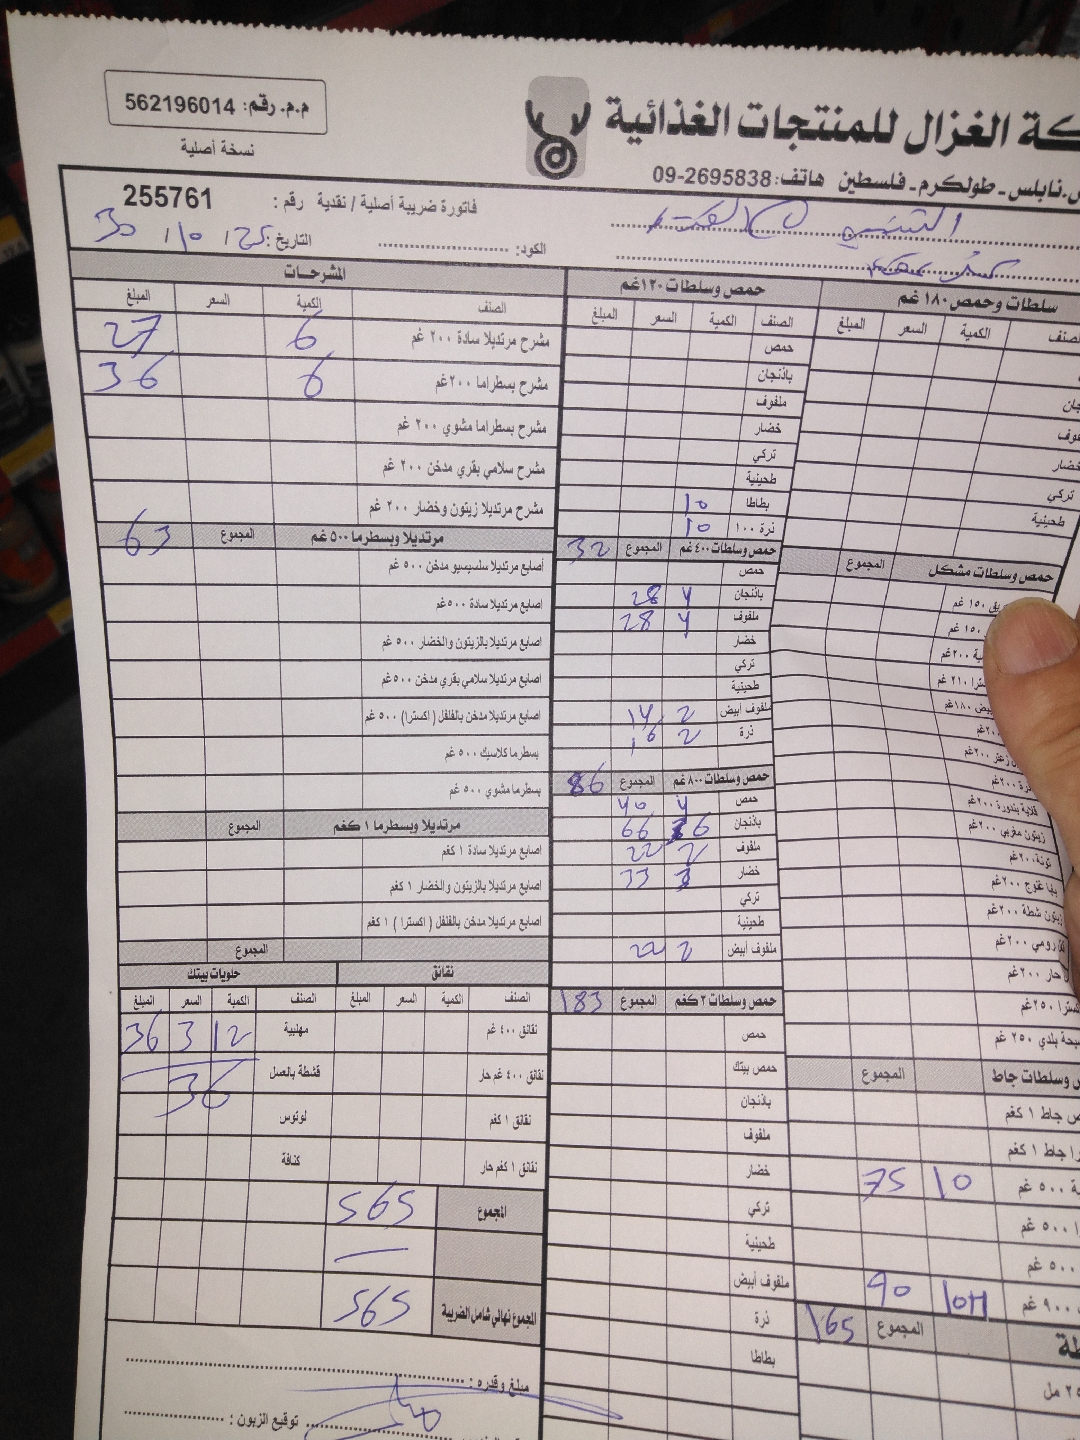 م.م. رقم: 562196014
نسخة أصلية
كة الغزال للمنتجات الغذائية
نابلس - طولكرم - فلسطين هاتف: 09-2695838
فاتورة ضريبة أصلية / نقدية رقم : 255761
التاريخ: 25 / 10 / 30
الكود:
المشرحات
الصنف الكمية السعر المبلغ
مشرح مرتديلا سادة ٢٠٠ غم 6 27
مشرح بسطراما ٢٠٠غم 6 36
مشرح بسطراما مشوي ٢٠٠ غم
مشرح سلامي بقري مدخن ٢٠٠ غم
مشرح مرتديلا زيتون وخضار ٢٠٠ غم
مرتديلا وبسطرما ٥٠٠ غم المجموع 63
أصابع مرتديلا سلسيسيو مدخن ٥٠٠ غم
اصابع مرتديلا سادة ٥٠٠غم
اصابع مرتديلا بالزيتون والخضار ٥٠٠ غم
اصابع مرتديلا سلامي بقري مدخن ٥٠٠غم
اصابع مرتديلا مدخن بالفلفل ( اكسترا) ٥٠٠ غم
بسطرما كلاسيك ٥٠٠ غم
بسطرما مشوي ٥٠٠ غم
مرتديلا وبسطرما ١ كغم المجموع
اصابع مرتديلا سادة ١ كغم
اصابع مرتديلا بالزيتون والخضار ١ كغم
اصابع مرتديلا مدخن بالفلفل ( اكسترا ) ١ كغم
المجموع
نقانق
الصنف الكمية السعر المبلغ
نقانق ٤٠٠ غم
نقانق ٤٠٠ غم حار
نقانق ١ كغم
نقانق ١ كغم حار
حلويات بيتك
الصنف الكمية السعر المبلغ
مهلبية 12 3 36
قشطة بالعسل 36
لوتوس
كنافة
المجموع 565
المجموع نهائي شامل الضريبة 565
مبلغ وقدره :
توقيع الزبون :
حمص وسلطات ١٢٠غم
الصنف الكمية السعر المبلغ
حمص
باذنجان
ملفوف
خضار
تركي
طحينية
بطاطا 10
ذرة ١٠٠ 10
حمص وسلطات ٤٠٠ غم المجموع 32
حمص
باذنجان 4 28
ملفوف 4 28
خضار
تركي
طحينية
ملفوف أبيض 2 14
ذرة 2 16
حمص وسلطات ٨٠٠ غم المجموع 86
حمص 4 40
باذنجان 6 66
ملفوف 2 22
خضار 3 33
تركي
طحينية
ملفوف أبيض 2 22
حمص وسلطات ٢ كغم المجموع 183
حمص
حمص بيتك
باذنجان
ملفوف
خضار
تركي
طحينية
ملفوف أبيض
ذرة
بطاطا
سلطات وحمص ١٨٠ غم
الكمية السعر المبلغ
خضار
تركي
طحينية
حمص وسلطات مشكل المجموع
١٥٠ غم
١٥٠ غم
٢٠٠غم
٢١٠ غم
١٨٠غم
قلاية بندورة ٢٠٠غم
زيتون مغربي ٢٠٠غم
تونة ٢٠٠غم
بابا غنوج ٢٠٠غم
زيتون شطة ٢٠٠غم
رومي ٢٠٠غم
حار ٢٠٠ غم
٢٥٠غم
بلدي ٢٥٠ غم
وسلطات جاط المجموع
جاط ١ كغم
جاط ١ كغم
٥٠٠ غم 10 75
٥٠٠ غم
٥٠٠ غم
٩٠٠ غم 10 90
المجموع 165